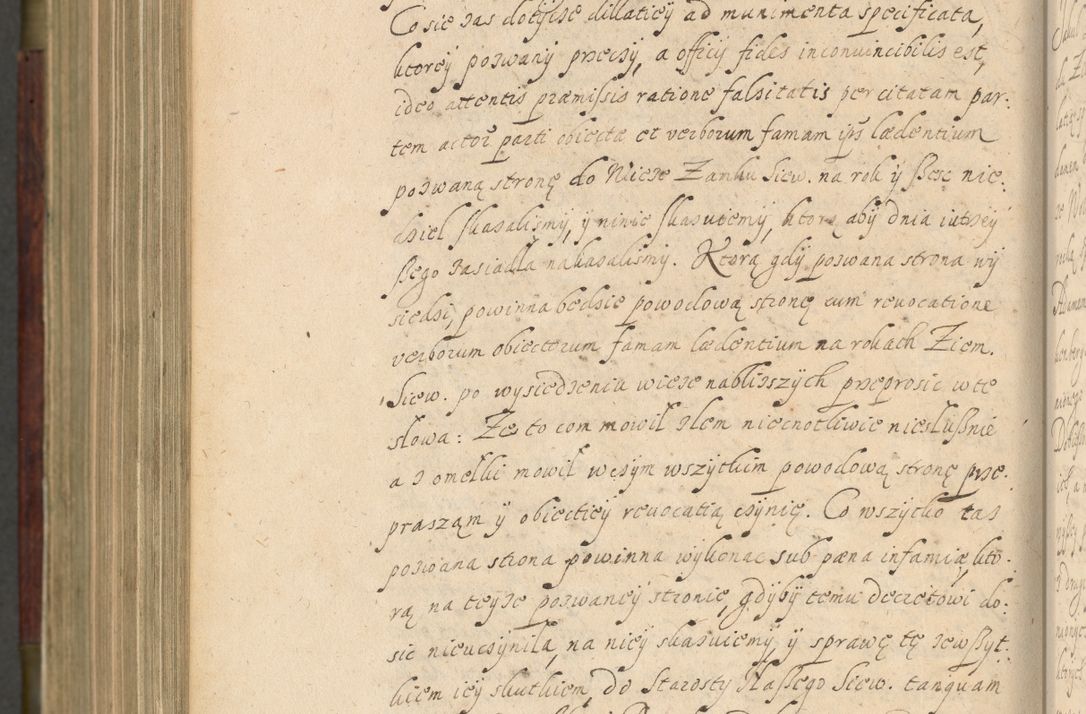 Co sie zas dotycze dillatiey ad munimenta specificata,
ktorey pozwany przeczy, a officij fides inconvincibilis est,
ideo attentis præmissis ratione falsitatis per citatam par-
tem actor. parti obiectæ et verborum famam ips. lædentium
pozwaną stronę do Wieże Zamku Siew. na rok y szesc nie-
dziel skazalismy, y ninie skazuiemy, ktorą aby dnia iutrzey
szego zasiadła nakazalismy. Ktorą gdy pozwana strona wy
siedzi, powinna bedzie powodową stronę cum revocatione
verborum obiectorum famam lædentium na rokach Ziem.
Siew. po wysiedzeniu wieże nabliższych przeprosic w te
słowa: Że to com mowił złem niecnotliwie niesłusznie
a z omełki mowił w czym wszytkim powodową stronę prze-
praszam y obiectiey revocatią czynię. Co wszytko taż
pozwana strona powinna wykonac sub pœna infamiæ, kto-
rą na teyże pozwaney stronie, gdyby temu decretowi do-
sic nieuczyniła, na niey skazuiemy, y sprawę tę ze wszyt-
kiem iey skutkiem, do Starosty Naszego Siew. tanquam